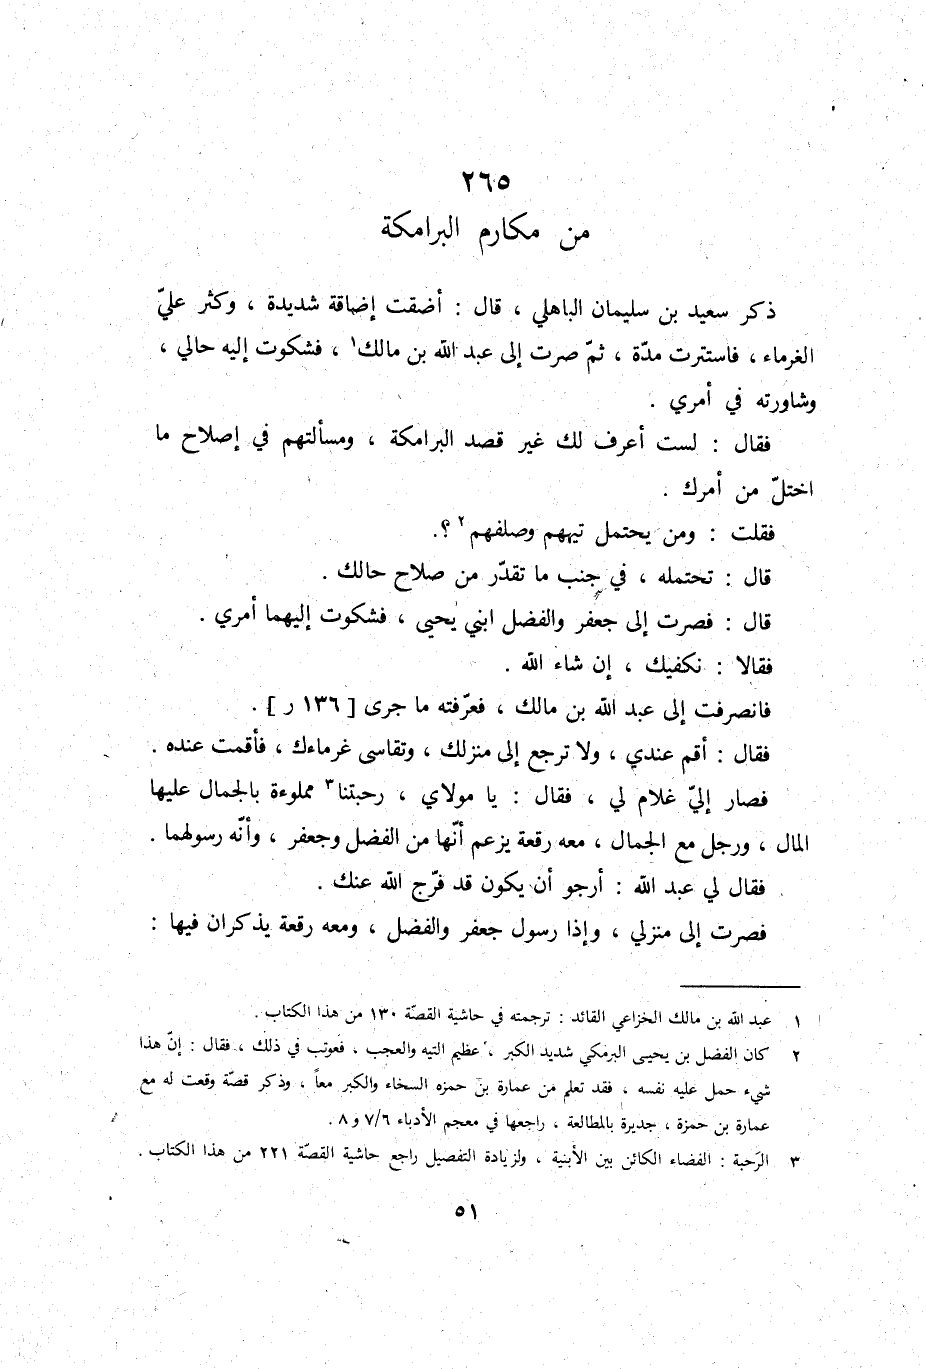 ٢٦٥
من مكارم البرامكة
ذكر سعيد بن سليمان الباهلي ، قال : أضقت إضاقة شديدة ، وكثر عليّ
الغرماء ، فاستترت مدّة ، ثمّ صرت إلى عبد الله بن مالك١ ، فشكوت إليه حالي ،
وشاورته في أمري .
فقال : لست أعرف لك غير قصد البرامكة ، ومسألتهم في إصلاح ما
اختلّ من أمرك .
فقلت : ومن يحتمل تيههم وصلفهم٢ ؟.
قال : تحتمله ، في جنب ما تقدّر من صلاح حالك .
قال : فصرت إلى جعفر والفضل ابني يحيى ، فشكوت إليهما أمري .
فقالا : نكفيك ، إن شاء الله .
فانصرفت إلى عبد الله بن مالك ، فعرّفته ما جرى [ ١٣٦ ر ] .
فقال : أقم عندي ، ولا ترجع إلى منزلك ، وتقاسى غرماءك ، فأقمت عنده .
فصار إليّ غلام لي ، فقال : يا مولاي ، رحبتنا٣ مملوءة بالجمال عليها
المال ، ورجل مع الجمال ، معه رقعة يزعم أنّها من الفضل وجعفر ، وأنّه رسولهما .
فقال لي عبد الله : أرجو أن يكون قد فرّج الله عنك .
فصرت إلى منزلي ، وإذا رسول جعفر والفضل ، ومعه رقعة يذكران فيها :
١ عبد الله بن مالك الخزاعي القائد : ترجمته في حاشية القصّة ١٣٠ من هذا الكتاب .
٢ كان الفضل بن يحيى البرمكي شديد الكبر ، عظيم التيه والعجب ، فعوتب في ذلك ، فقال : إنّ هذا
شيء حمل عليه نفسه ، فقد تعلم من عمارة بن حمزه السخاء والكبر معاً ، وذكر قصّة وقعت له مع
عمارة بن حمزة ، جديرة بالمطالعة ، راجعها في معجم الأدباء ٧/٦ و ٨ .
٣ الرَحبة : الفضاء الكائن بين الأبنية ، ولزيادة التفصيل راجع حاشية القصّة ٢٢١ من هذا الكتاب .
٥١